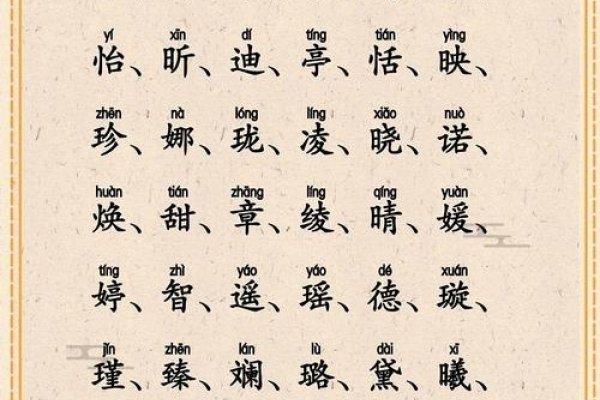 yí xīn dí tíng tián yìng
怡、昕、迪、亭、恬、映、
zhēn nà lóng líng xiǎo nuò
珍、娜、珑、凌、晓、诺、
huàn tián zhāng líng qíng yuàn
焕、甜、章、绫、晴、媛、
tíng zhì yáo yáo dé xuán
婷、智、遥、瑶、德、璇、
jǐn zhēn lán lù dài xī
瑾、臻、斓、璐、黛、曦、